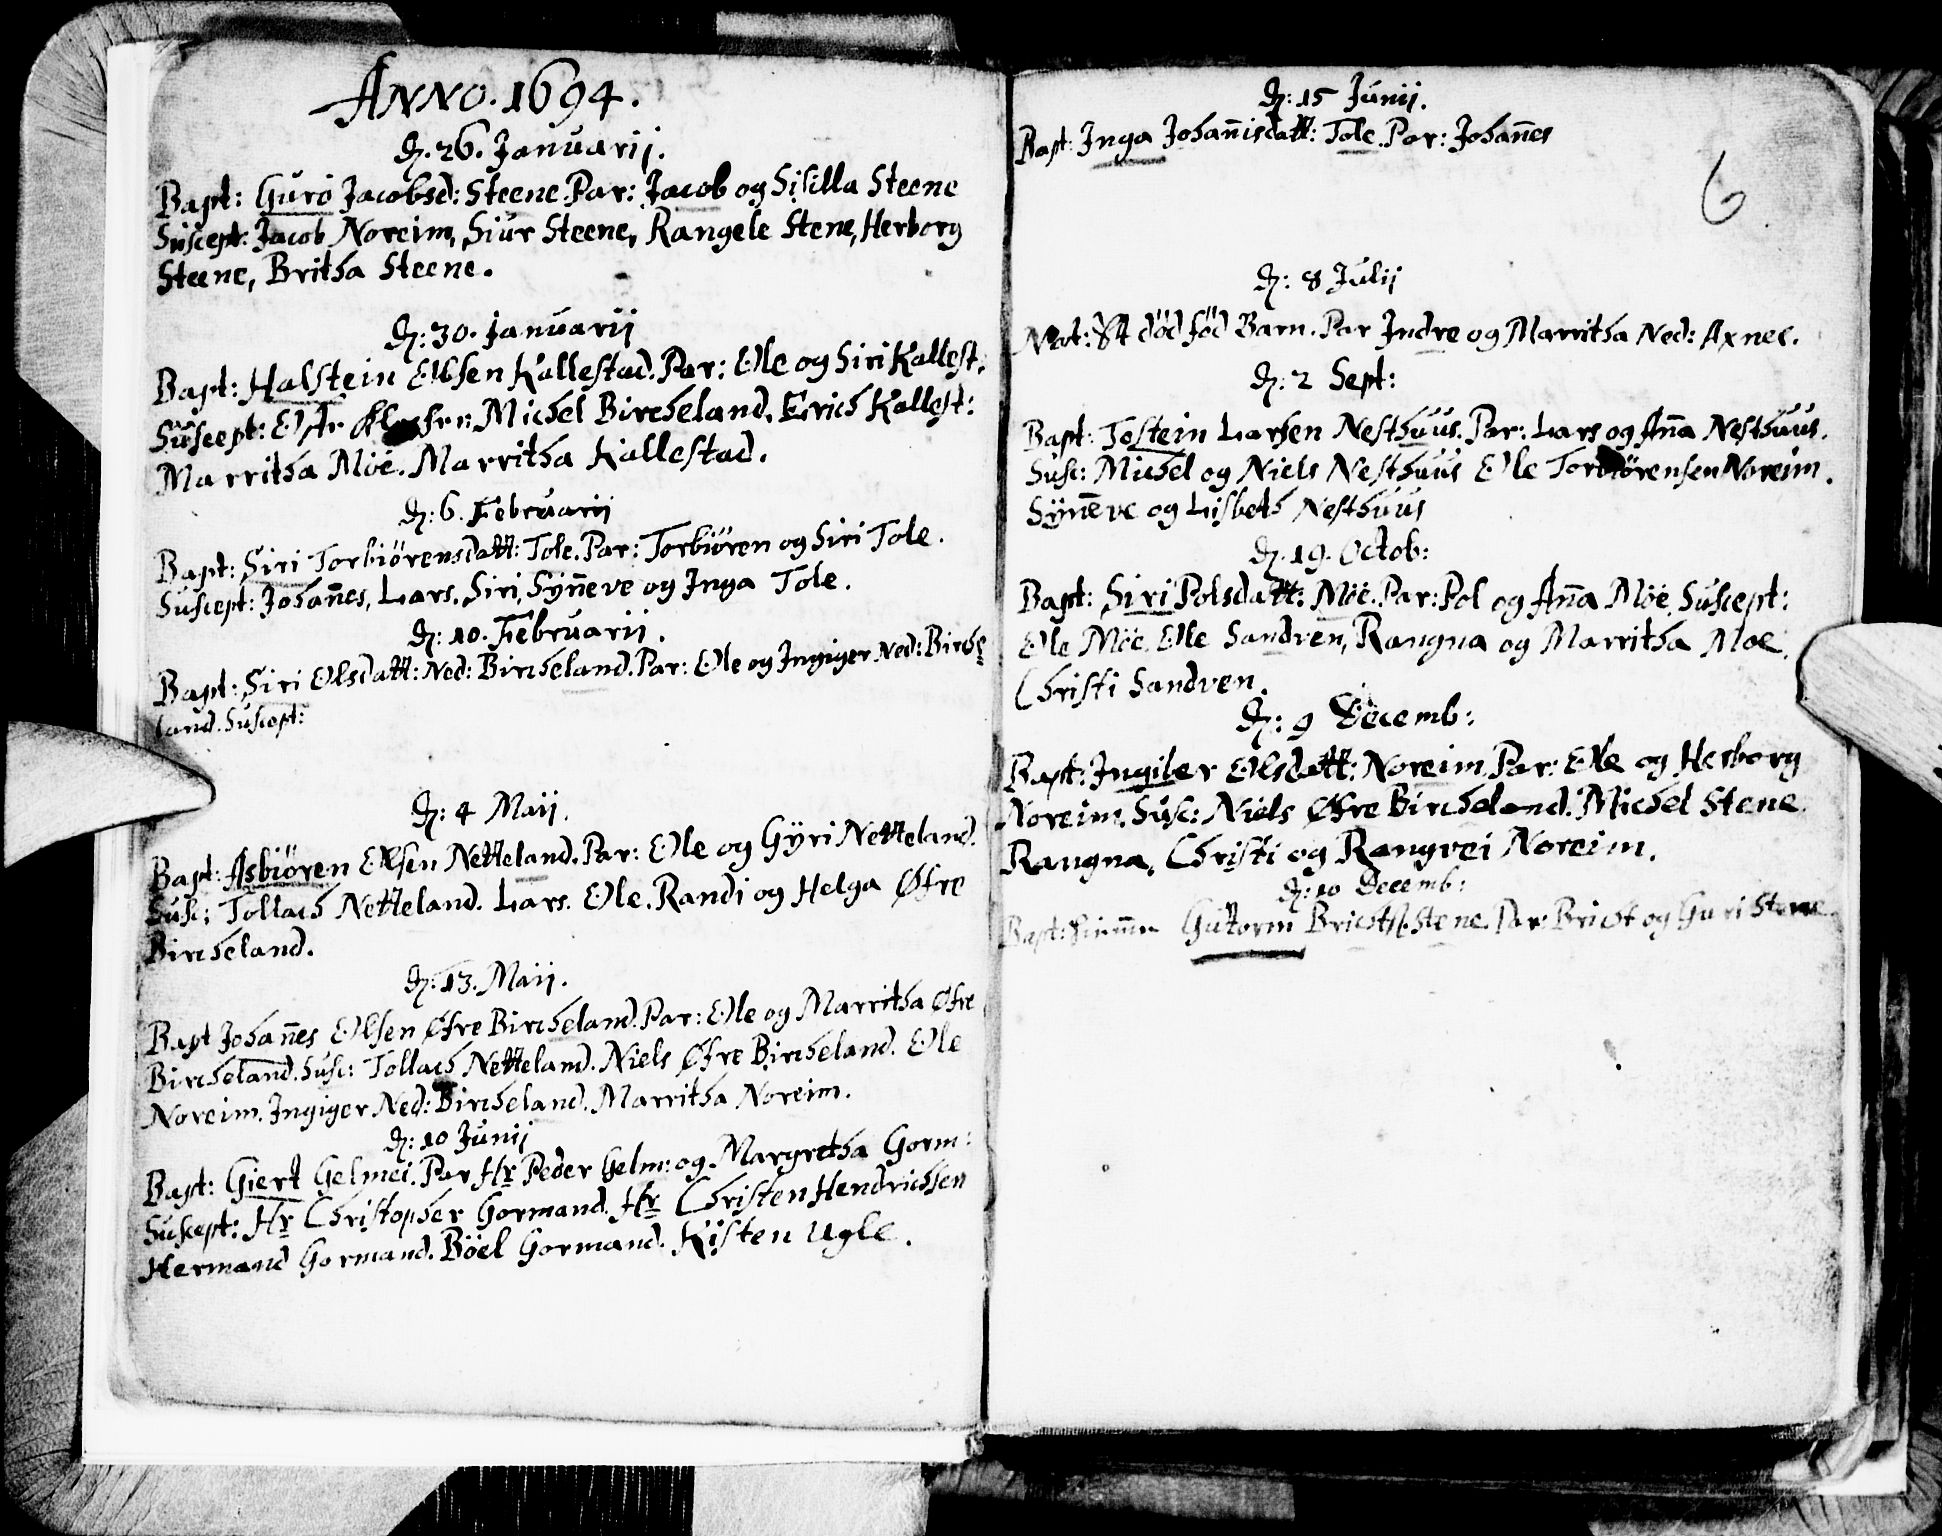 ANNO. 1694.
D. 26. Januarij.
Bapt: Guro Jacobsd: Steene. Par: Jacob og Sisilla Steene
Suscept: Jacob Noreim, Siur Steene, Rangele Stene, Herborg
Steene, Britha Steene.
D: 30. Januarij
Bapt: Halstein Olsen Kallestad. Par: Ole og Siri Kallest:
Suscept: Michel Bircheland. Erich Kallest:
Marritha Möe. Marritha Kallestad.
D: 6. Februarij
Bapt: Siri Torbiörensdatt: Tole. Par: Torbiören og Siri Tole.
Suscept: Johañes, Lars, Siri, Syñeve og Inga Tole.
D: 10. Februarij.
Bapt: Siri Olsdatt: Ned: Bircheland. Par: Ole og Ingiger Ned: Birche
land. Suscept:
D: 4 Maij.
Bapt: Asbiören Olsen Netteland. Par: Ole og Gÿri Netteland.
Susc: Tollach Netteland. Lars. Ole. Randi og Helga Øfre
Bircheland.
D: 13. Maij.
Bapt Johañes Olsen Øfre Bircheland. Par: Ole og Marritha Øfre
Bircheland. Susc: Tollach Netteland. Niels Øfre Bircheland. Ole
Noreim. Ingiger Ned: Bircheland. Marritha Noreim.
D: 10 Junij
Bapt: Giert Gelmei. Par Hr Peder Gelm: og Margretha Gorm:
Suscept: Hr Christopher Gormand. Hr Christen Hendrichsen
Hermand Gormand. Böel Gormand. Kisten Ugle.
D: 15 Junij.
Bapt: Inga Johañisdatt: Tole. Par: Johañes
6
D: 8 Julij
Not: Et död föd Barn. Par Indre og Marritha Ned: Axnes.
D: 2 Sept:
Bapt: Tostein Larsen Nesthuus. Par: Lars og Aña Nesthuus.
Susc: Michel og Niels Nesthuus Ole Torbiörensen Noreim.
Syñeve og Lisbeth Nesthuus
D. 19. Octob:
Bapt: Siri Polsdatt: Möe. Par: Pol og Aña Möe. Suscept:
Ole Möe. Olle Sandven, Rangna og Marritha Moe.
Christi Sandven.
D: 9 Decemb:
Bapt: Ingiber Olsdatt: Noreim. Par: Ole og Herborg
Noreim. Susc: Niels Øfre Bircheland. Michel Stene
Rangna, Christi og Rangvei Noreim.
D: 10 Decemb:
Bapt: Guttorm Brichts. Stene. Par: Bricht og Guri Stene